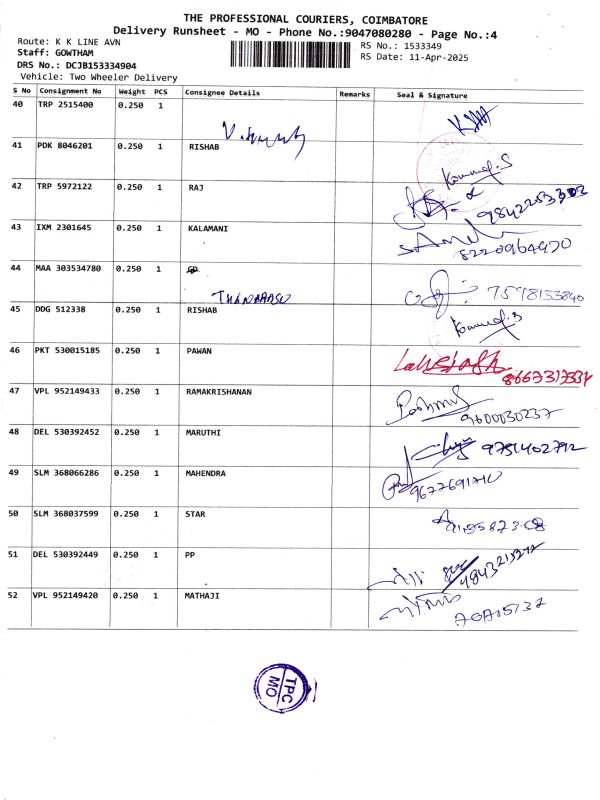 THE PROFESSIONAL COURIERS, COIMBATORE
Delivery Runsheet - MO - Phone No.:9047080280 - Page No.:4
Route: K K LINE AVN
RS No.: 1533349
Staff: GOWTHAM
RS Date: 11-Apr-2025
DRS No.: DCJB153334904
Vehicle: Two Wheeler Delivery
S No Consignment No Weight PCS Consignee Details Remarks Seal & Signature
40 TRP 2515400 0.250 1
41 PDK 8046201 0.250 1 RISHAB
42 TRP 5972122 0.250 1 RAJ
9842253303
43 IXM 2301645 0.250 1 KALAMANI
8220964970
44 MAA 303534780 0.250 1
7598133840
45 DDG 512338 0.250 1 RISHAB
46 PKT 530015185 0.250 1 PAWAN
8667317334
47 VPL 952149433 0.250 1 RAMAKRISHANAN
9600030237
48 DEL 530392452 0.250 1 MARUTHI
9751402792
49 SLM 368066286 0.250 1 MAHENDRA
9677691710
50 SLM 368037599 0.250 1 STAR
51 DEL 530392449 0.250 1 PP
9843213272
52 VPL 952149420 0.250 1 MATHAJI
TPC
MO